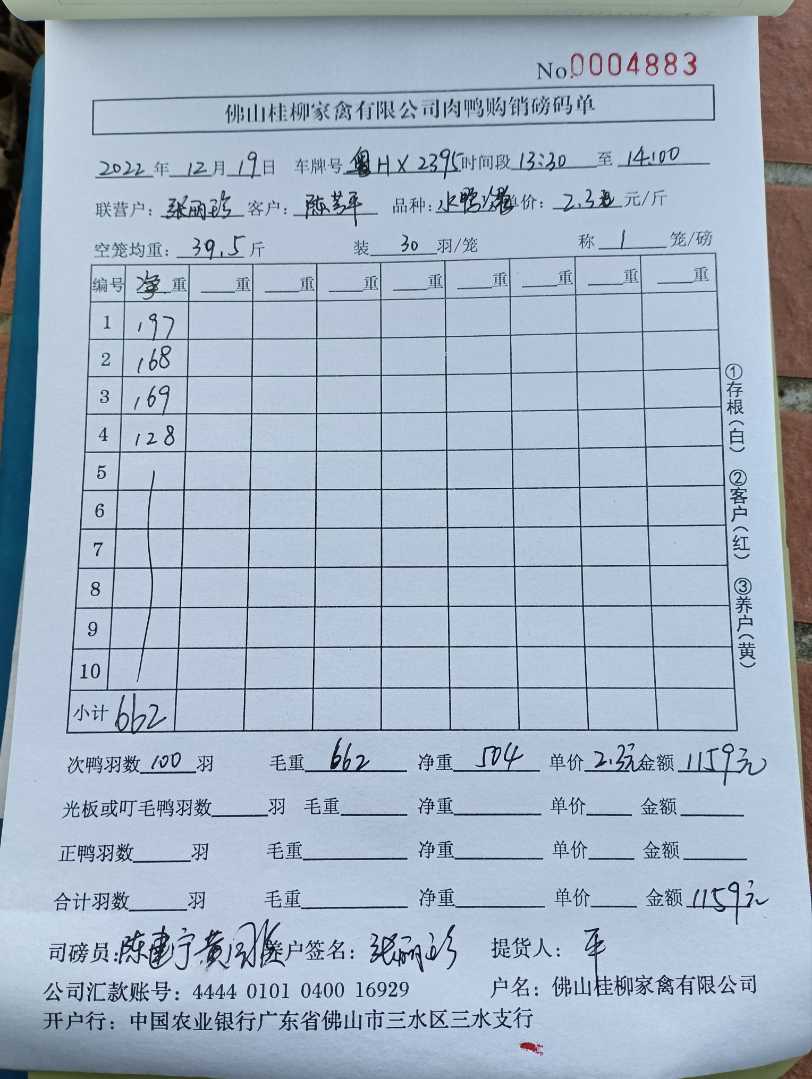 No.0004883
佛山桂柳家禽有限公司肉鸭购销磅码单
2022 年 12 月 19 日 车牌号 粤HX2395 时间段 13:30 至 14:00
联营户: 张丽珍 客户: 陈 平 品种: 水鸭 单价: 2.3 元/斤
空笼均重: 39.5 斤 装 30 羽/笼 称 1 笼/磅
编号 净 重 重 重 重 重 重 重 重 重
1 197
2 168
3 169
4 128
5
6
7
8
9
10
小计 662
次鸭羽数 100 羽 毛重 662 净重 504 单价 2.3元 金额 1159元
光板或叮毛鸭羽数 羽 毛重 净重 单价 金额
正鸭羽数 羽 毛重 净重 单价 金额
合计羽数 羽 毛重 净重 单价 金额 1159元
司磅员: 陈建宁 黄 养户签名: 张丽珍 提货人: 平
公司汇款账号: 4444 0101 0400 16929 户名: 佛山桂柳家禽有限公司
开户行: 中国农业银行广东省佛山市三水区三水支行
①存根(白) ②客户(红) ③养户(黄)